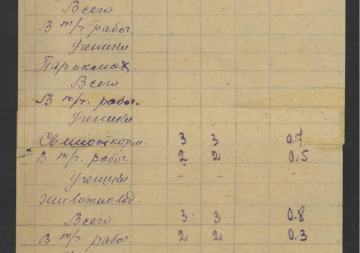 Всего
В т/ч. рабоч.
Ученики
Парикмах.
Всего
В т/ч. рабоч.
Ученики
Свиноотkорм. 3 3 0.7
В т/ч. рабоч. 2 2 0.5
Ученики - -
Животновод.
Всего 3 3 0.8
В т/ч. рабоч. 2 2 0.3